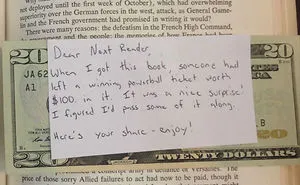 not deployed until the first week of October), which had overwhelming
superiority over the German forces in the west, attack, as General Game-
lin and the French government had promised in writing it would?
There were many reasons: the defeatism in the French High Command,
20
JA 62
A1
Dear Next Reader,
When I got this book, someone had
left a winning powerball ticket worth
$100 in it. It was a nice surprise!
I figured I'd pass some of it along.
Here's your share - enjoy!
20
B
TWENTY DOLLARS
price of those sorry Allied failures to act had now to be paid, though it